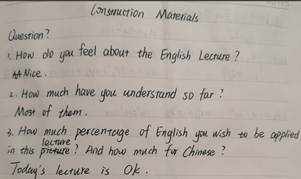 Construction Materials
Question?
1. How do you feel about the English Lecture?
Nice.
2. How much have you understand so far?
Most of them.
3. How much percentage of English you wish to be applied
lecture
in this picture? And how much for Chinese?
Today's lecture is Ok.